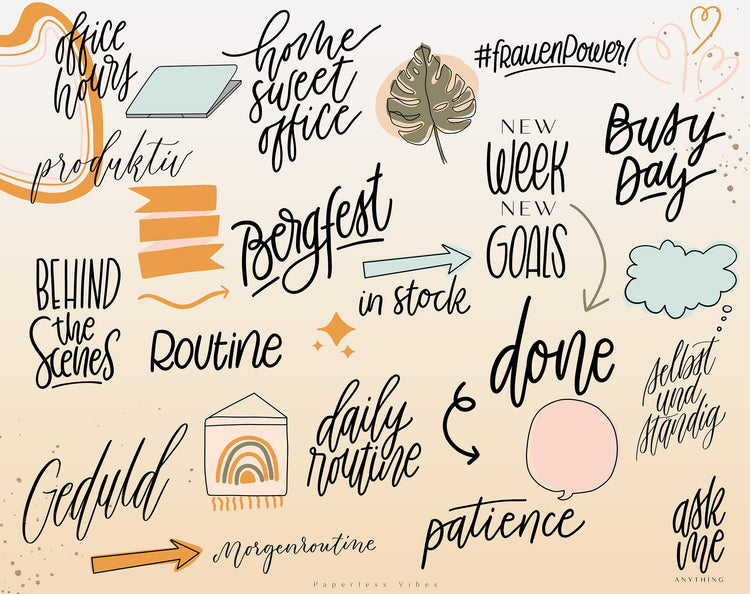 office
hours
home
sweet
office
#frauenPower!
produktiv
NEW
WEEK
NEW
GOALS
Busy
Day
Bergfest
BEHIND
the
Scenes
in stock
ROUTINE
done
selbst
und
ständig
Geduld
daily
routine
patience
Morgenroutine
ask
me
ANYTHING
Paperless Vibes